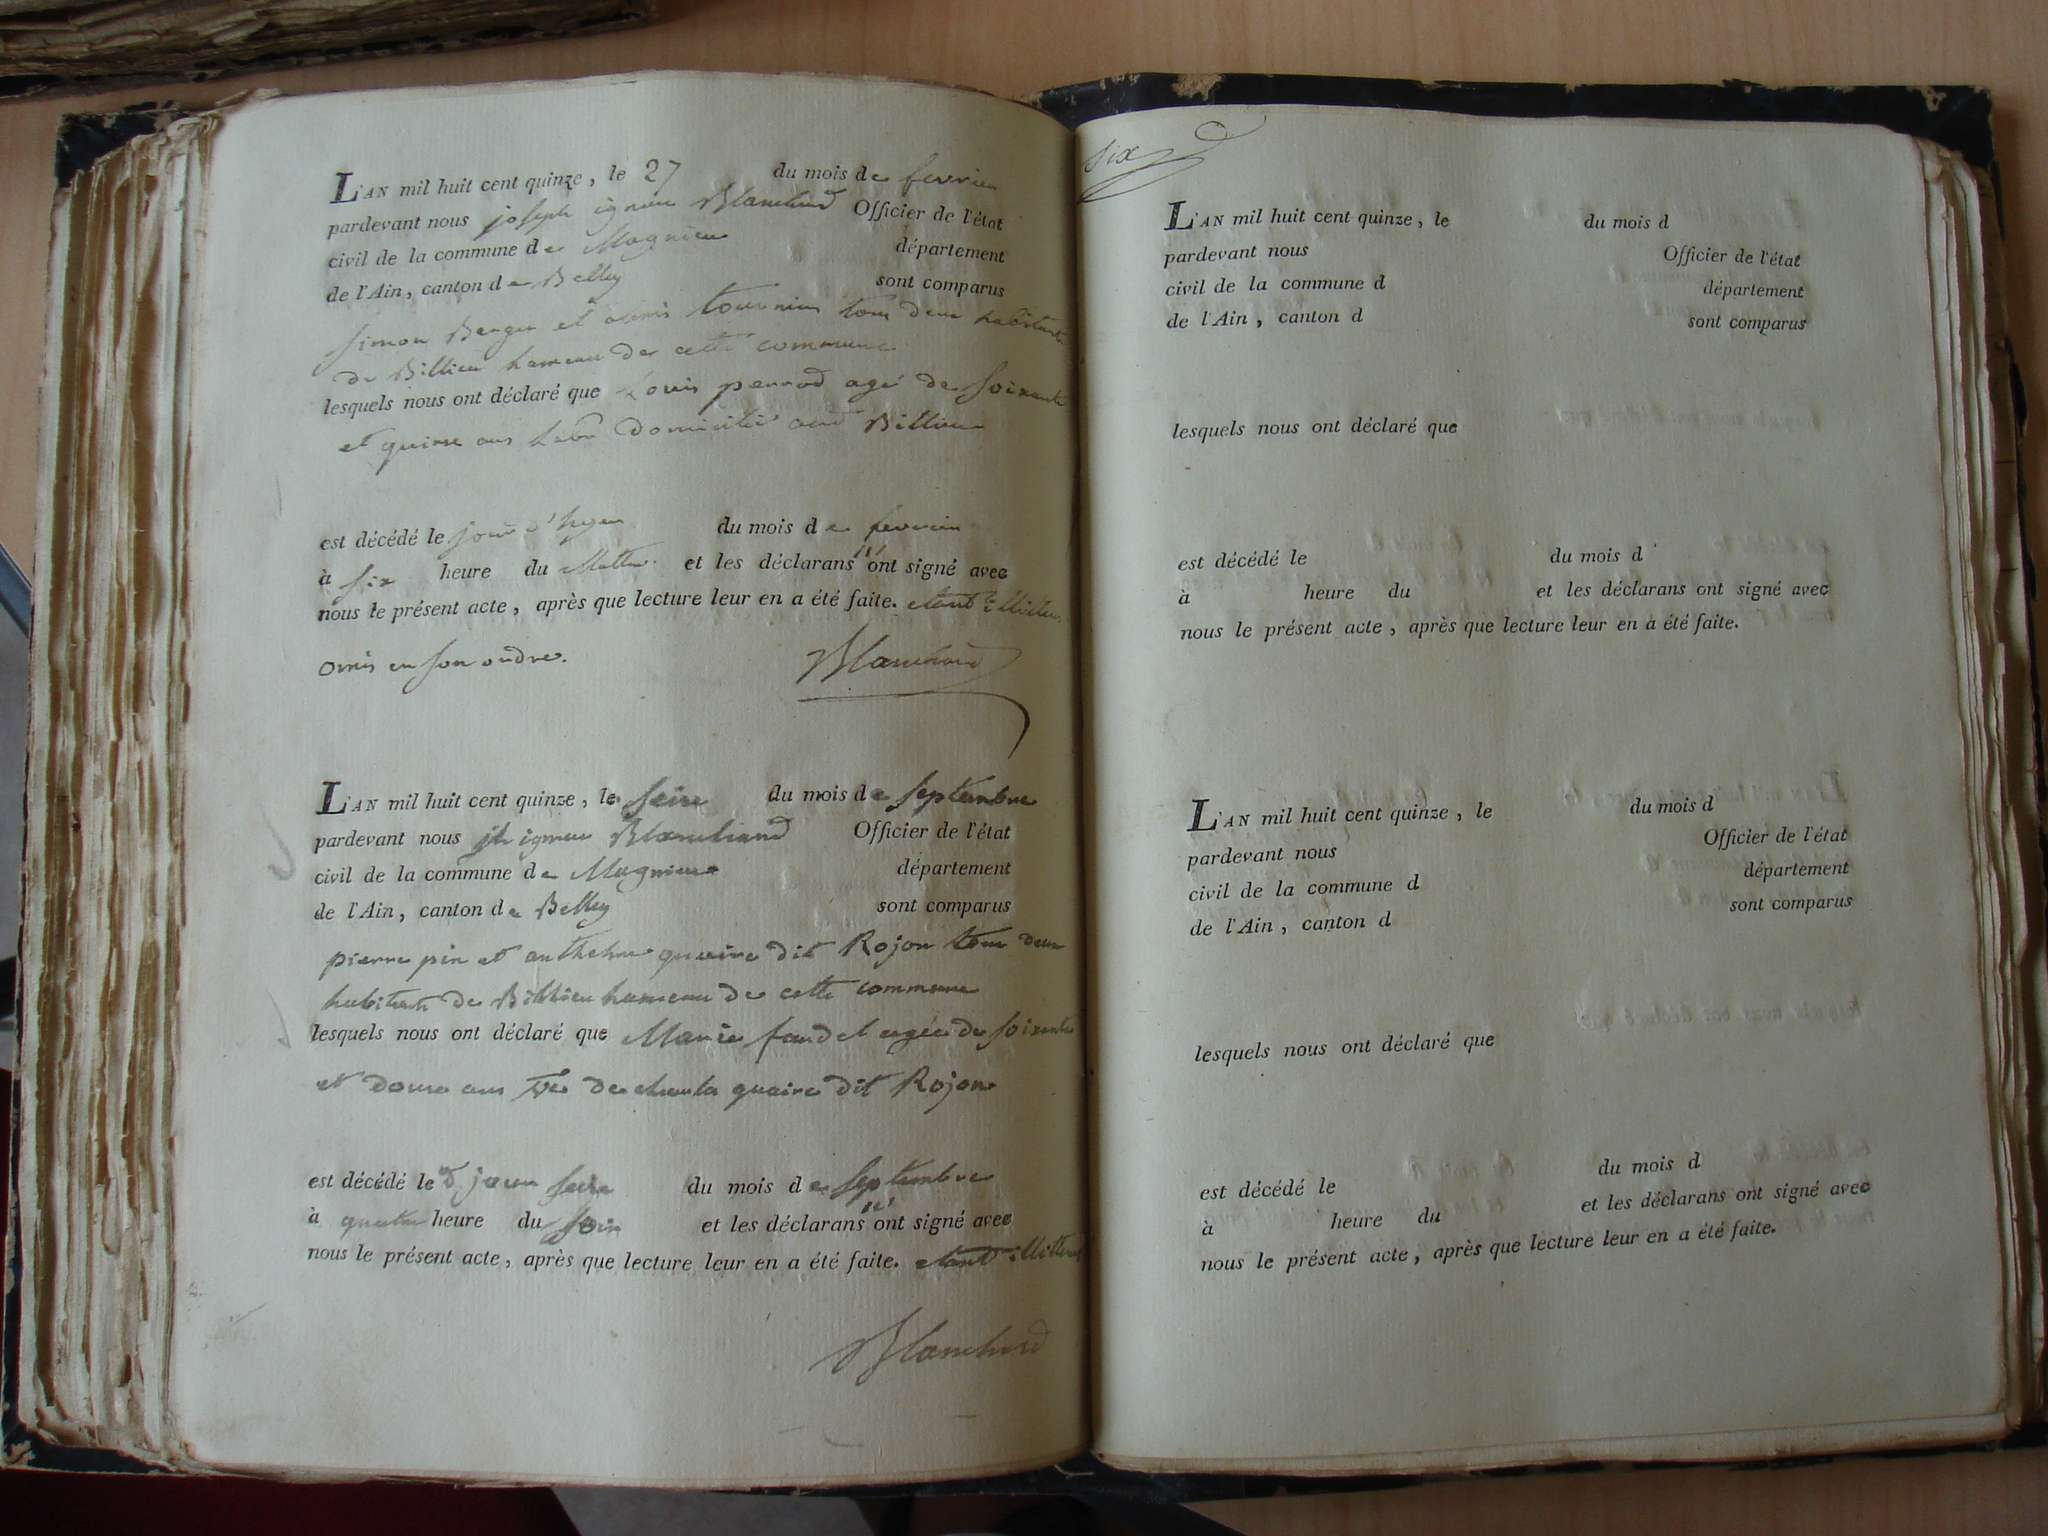 L'AN mil huit cent quinze, le 27 du mois de fevrier
pardevant nous joseph ignace Blanchard Officier de l'état
civil de la commune de Magnieu département
de l'Ain, canton de Belley sont comparus
Simon Berger et tournier tous deux habitants
de Billieu hameau de cette commune
lesquels nous ont déclaré que Louis perrod agé de soixante
et quinse ans domicilié Billieu
est décédé le jour d'hyer du mois de fevrier
à six heure du Matin et les déclarans n'ont signé avec
nous le présent acte, après que lecture leur en a été faite. etant illitere
omis en son ordre.
Blanchard
L'AN mil huit cent quinze, le seise du mois de septembre
pardevant nous jh ignace Blanchard Officier de l'état
civil de la commune de Magnieu département
de l'Ain, canton de Belley sont comparus
pierre pin et anthelme quaire dit Rojon tous deux
habitants de Billieu hameau de cette commune
lesquels nous ont déclaré que Marie fandel agée de soixante
et douse ans ve de quaire dit Rojon
est décédé le d jour seise du mois de septembre
à quatre heure du soir et les déclarans n'ont signé avec
nous le présent acte, après que lecture leur en a été faite. etant illitere
Blanchard
six
L'AN mil huit cent quinze, le du mois d
pardevant nous Officier de l'état
civil de la commune d département
de l'Ain, canton d sont comparus
lesquels nous ont déclaré que
est décédé le du mois d
à heure du et les déclarans ont signé avec
nous le présent acte, après que lecture leur en a été faite.
L'AN mil huit cent quinze, le du mois d
pardevant nous Officier de l'état
civil de la commune d département
de l'Ain, canton d sont comparus
lesquels nous ont déclaré que
est décédé le du mois d
à heure du et les déclarans ont signé avec
nous le présent acte, après que lecture leur en a été faite.